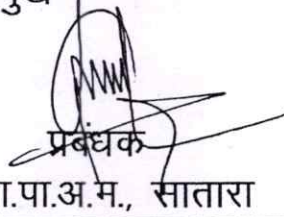 प्रबंधक
ा.पा.अ.म., सातारा